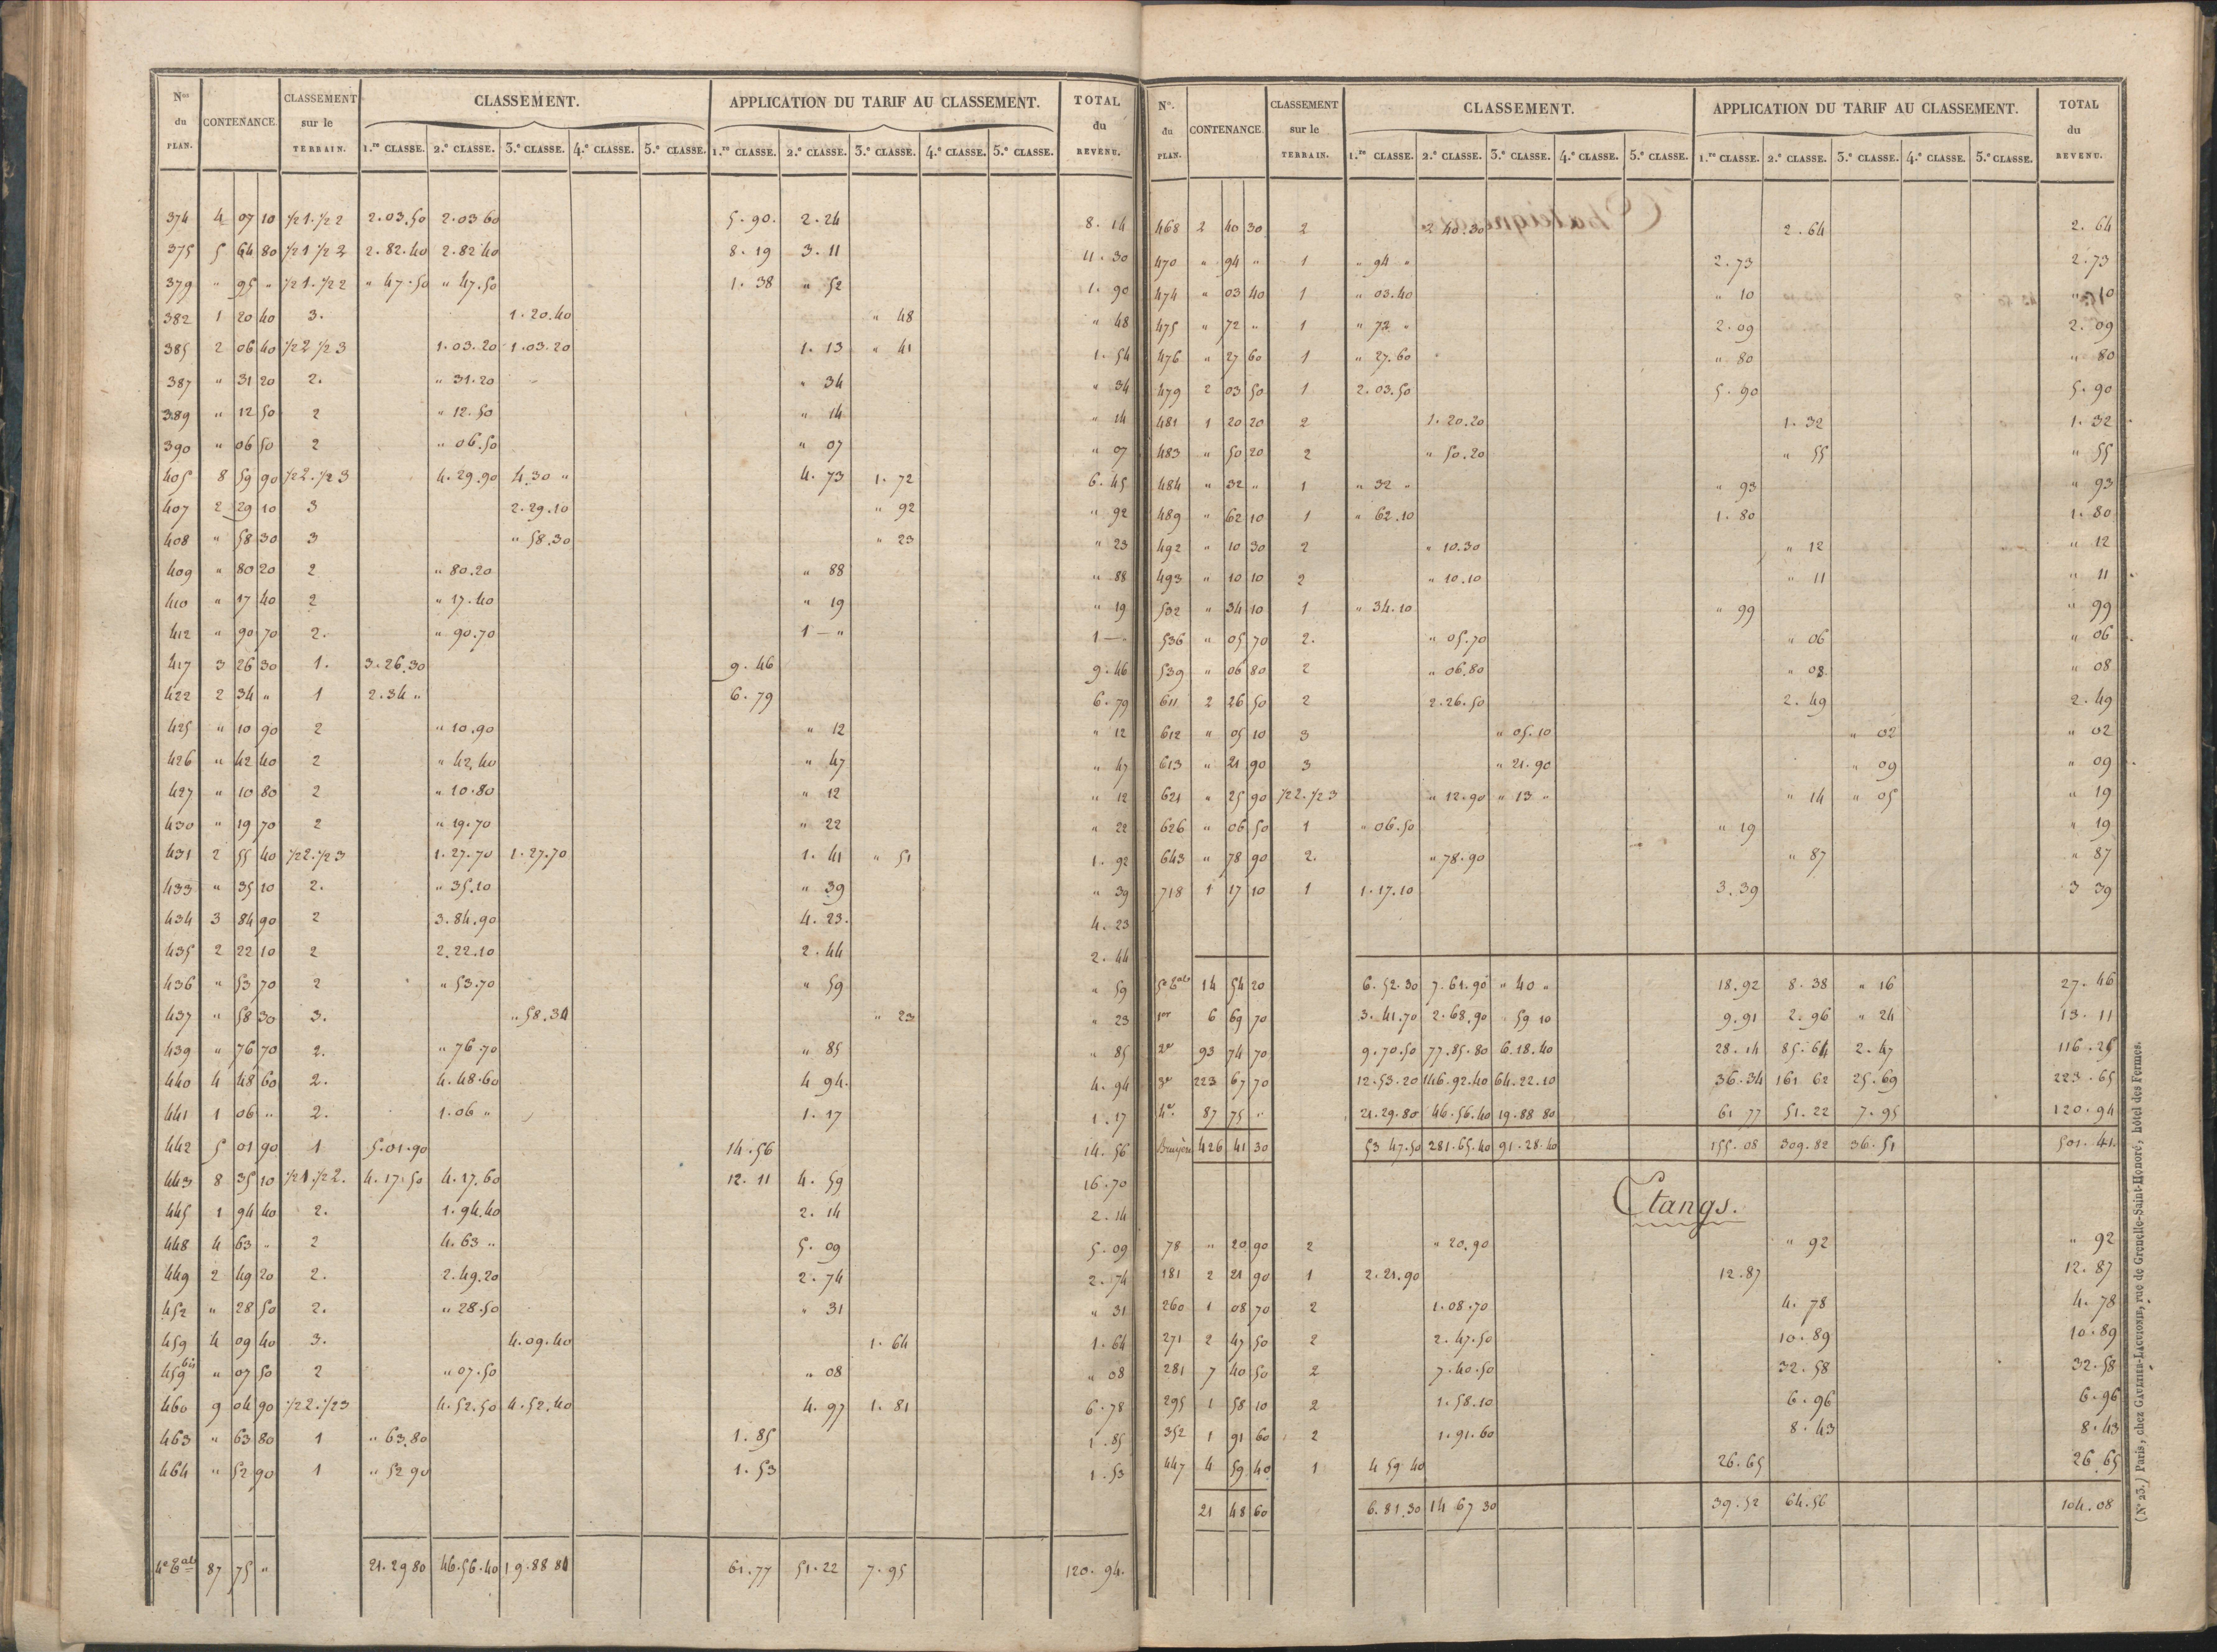 Nos du PLAN. CONTENANCE. CLASSEMENT sur le TERRAIN. CLASSEMENT. APPLICATION DU TARIF AU CLASSEMENT. TOTAL du REVENU.
1.re CLASSE. 2.e CLASSE. 3.e CLASSE. 4.e CLASSE. 5.e CLASSE. 1.re CLASSE. 2.e CLASSE. 3.e CLASSE. 4.e CLASSE. 5.e CLASSE.
374 4 07 10 1/2 1. 1/2 2 2.03.50 2.03 60 5.90. 2.24 8.14
375 5 64 80 1/2 1 1/2 2 2.82.40 2.82 40 8.19 3.11 11.30
379 " 95 " 1/2 1. 1/2 2 " 47.50 " 47.50 1.38 " 52 1.90
382 1 20 40 3. 1.20.40 " 48 " 48
385 2 06 40 1/2 2 1/2 3 1.03.20 1.03.20 1.13 " 41 1.54
387 " 31 20 2. " 31.20 " 34 " 34
389 " 12 50 2 " 12.50 " 14 " 14
390 " 06 50 2 " 06.50 " 07 " 07
405 8 59 90 1/2 2. 1/2 3 4.29.90 4.30 " 4.73 1.72 6.45
407 2 29 10 3 2.29.10 " 92 " 92
408 " 58 30 3 " 58.30 " 23 " 23
409 " 80 20 2 " 80.20 " 88 " 88
410 " 17 40 2 " 17.40 " 19 " 19
412 " 90 70 2. " 90.70 1 — " 1 — "
417 3 26 30 1. 3.26.30 9.46 9.46
422 2 34 " 1 2.34 " 6.79 6.79
425 " 10 90 2 " 10.90 " 12 " 12
426 " 42 40 2 " 42.40 " 47 " 47
427 " 10 80 2 " 10.80 " 12 " 12
430 " 19 70 2 " 19.70 " 22 " 22
431 2 55 40 1/2 2. 1/2 3 1.27.70 1.27.70 1.41 " 51 1.92
433 " 35 10 2. " 35.10 " 39 " 39
434 3 84 90 2 3.84.90 4.23. 4.23
435 2 22 10 2 2.22.10 2.44 2.44
436 " 53 70 2 " 53.70 " 59 " 59
437 " 58 30 3. " 58.30 " 23 " 23
439 " 76 70 2. " 76.70 " 85 " 85
440 4 48 60 2. 4.48.60 4 94. 4.94
441 1 06 " 2. 1.06 " 1.17 1.17
442 5 01 90 1 5.01.90 14.56 14.56
443 8 35 10 1/2 1. 1/2 2. 4.17.50 4.17.60 12.11 4.59 16.70
445 1 94 40 2. 1.94.40 2.14 2.14
448 4 63 " 2 4.63 " 5.09 5.09
449 2 49 20 2. 2.49.20 2.74 2.74
452 " 28 50 2. " 28.50 " 31 " 31
459 4 09 40 3. 4.09.40 1.64 1.64
459 bis " 07 50 2 " 07.50 " 08 " 08
460 9 04 90 1/2 2. 1/2 3 4.52.50 4.52.40 4.97 1.81 6.78
463 " 63 80 1 " 63.80 1.85 1.85
464 " 52 90 1 " 52 90 1.53 1.53
87 75 " 21.29 80 46.56.40 19.88 80 61.77 51.22 7.95 120.94.
N.o du PLAN. CONTENANCE. CLASSEMENT sur le TERRAIN. CLASSEMENT. APPLICATION DU TARIF AU CLASSEMENT. TOTAL du REVENU.
1.re CLASSE. 2.e CLASSE. 3.e CLASSE. 4.e CLASSE. 5.e CLASSE. 1.re CLASSE. 2.e CLASSE. 3.e CLASSE. 4.e CLASSE. 5.e CLASSE.
468 2 40 30 2 2 40.30 2.64 2.64
470 " 94 " 1 " 94 " 2.73 2.73
474 " 03 40 1 " 03.40 " 10 " 10
475 " 72 " 1 " 72 " 2.09 2.09
476 " 27 60 1 " 27.60 " 80 " 80
479 2 03 50 1 2.03.50 5.90 5.90
481 1 20 20 2 1.20.20 1.32 1.32
483 " 50 20 2 " 50.20 " 55 " 55
484 " 32 " 1 " 32 " " 93 " 93
489 " 62 10 1 " 62.10 1.80 1.80
492 " 10 30 2 " 10.30 " 12 " 12
493 " 10 10 2 " 10.10 " 11 " 11
532 " 34 10 1 " 34.10 " 99 " 99
536 " 05 70 2. " 05.70 " 06 " 06
539 " 06 80 2 " 06.80 " 08 " 08
611 2 26 50 2 2.26.50 2.49 2.49
612 " 05 10 3 " 05.10 " 02 " 02
613 " 21 90 3 " 21.90 " 09 " 09
621 " 25 90 1/2 2. 1/2 3 " 12.90 " 13 " " 14 " 05 " 19
626 " 06 50 1 " 06.50 " 19 " 19
643 " 78 90 2. " 78.90 " 87 " 87
718 1 17 10 1 1.17.10 3.39 3 39
14 54 20 6.52.30 7.61.90 " 40 " 18.92 8.38 " 16 27.46
1er 6 69 70 3.41.70 2.68.90 " 59 10 9.91 2.96 " 24 13.11
2e 93 74 70 9.70.50 77.85.80 6.18.40 28.14 85.64 2.47 116.25
3e 223 67 70 12.53.20 146.92.40 64.22.10 36.34 161.62 25.69 223.65
4e 87 75 " 21.29.80 46.56.40 19.88 80 61 77 51.22 7.95 120.94
Bruyère 426 41 30 53 47.50 281.65.40 91.28.40 155.08 309.82 36.51 501.41
Etangs.
78 " 20 90 2 " 20.90 " 92 " 92
181 2 21 90 1 2.21.90 12.87 12.87
260 1 08 70 2 1.08.70 4.78 4.78
271 2 47 50 2 2.47.50 10.89 10.89
281 7 40 50 2 7.40.50 32.58 32.58
295 1 58 10 2 1.58.10 6.96 6.96
352 1 91 60 2 1.91.60 8.43 8.43
447 4 59 40 1 4 59 40 26.65 26.65
21 48 60 6.81.30 14 67 30 39.52 64.56 104.08
(N° 23.) Paris, chez GAULTIER-LAGUIONIE, rue de Grenelle-Saint-Honoré, hôtel des Fermes.